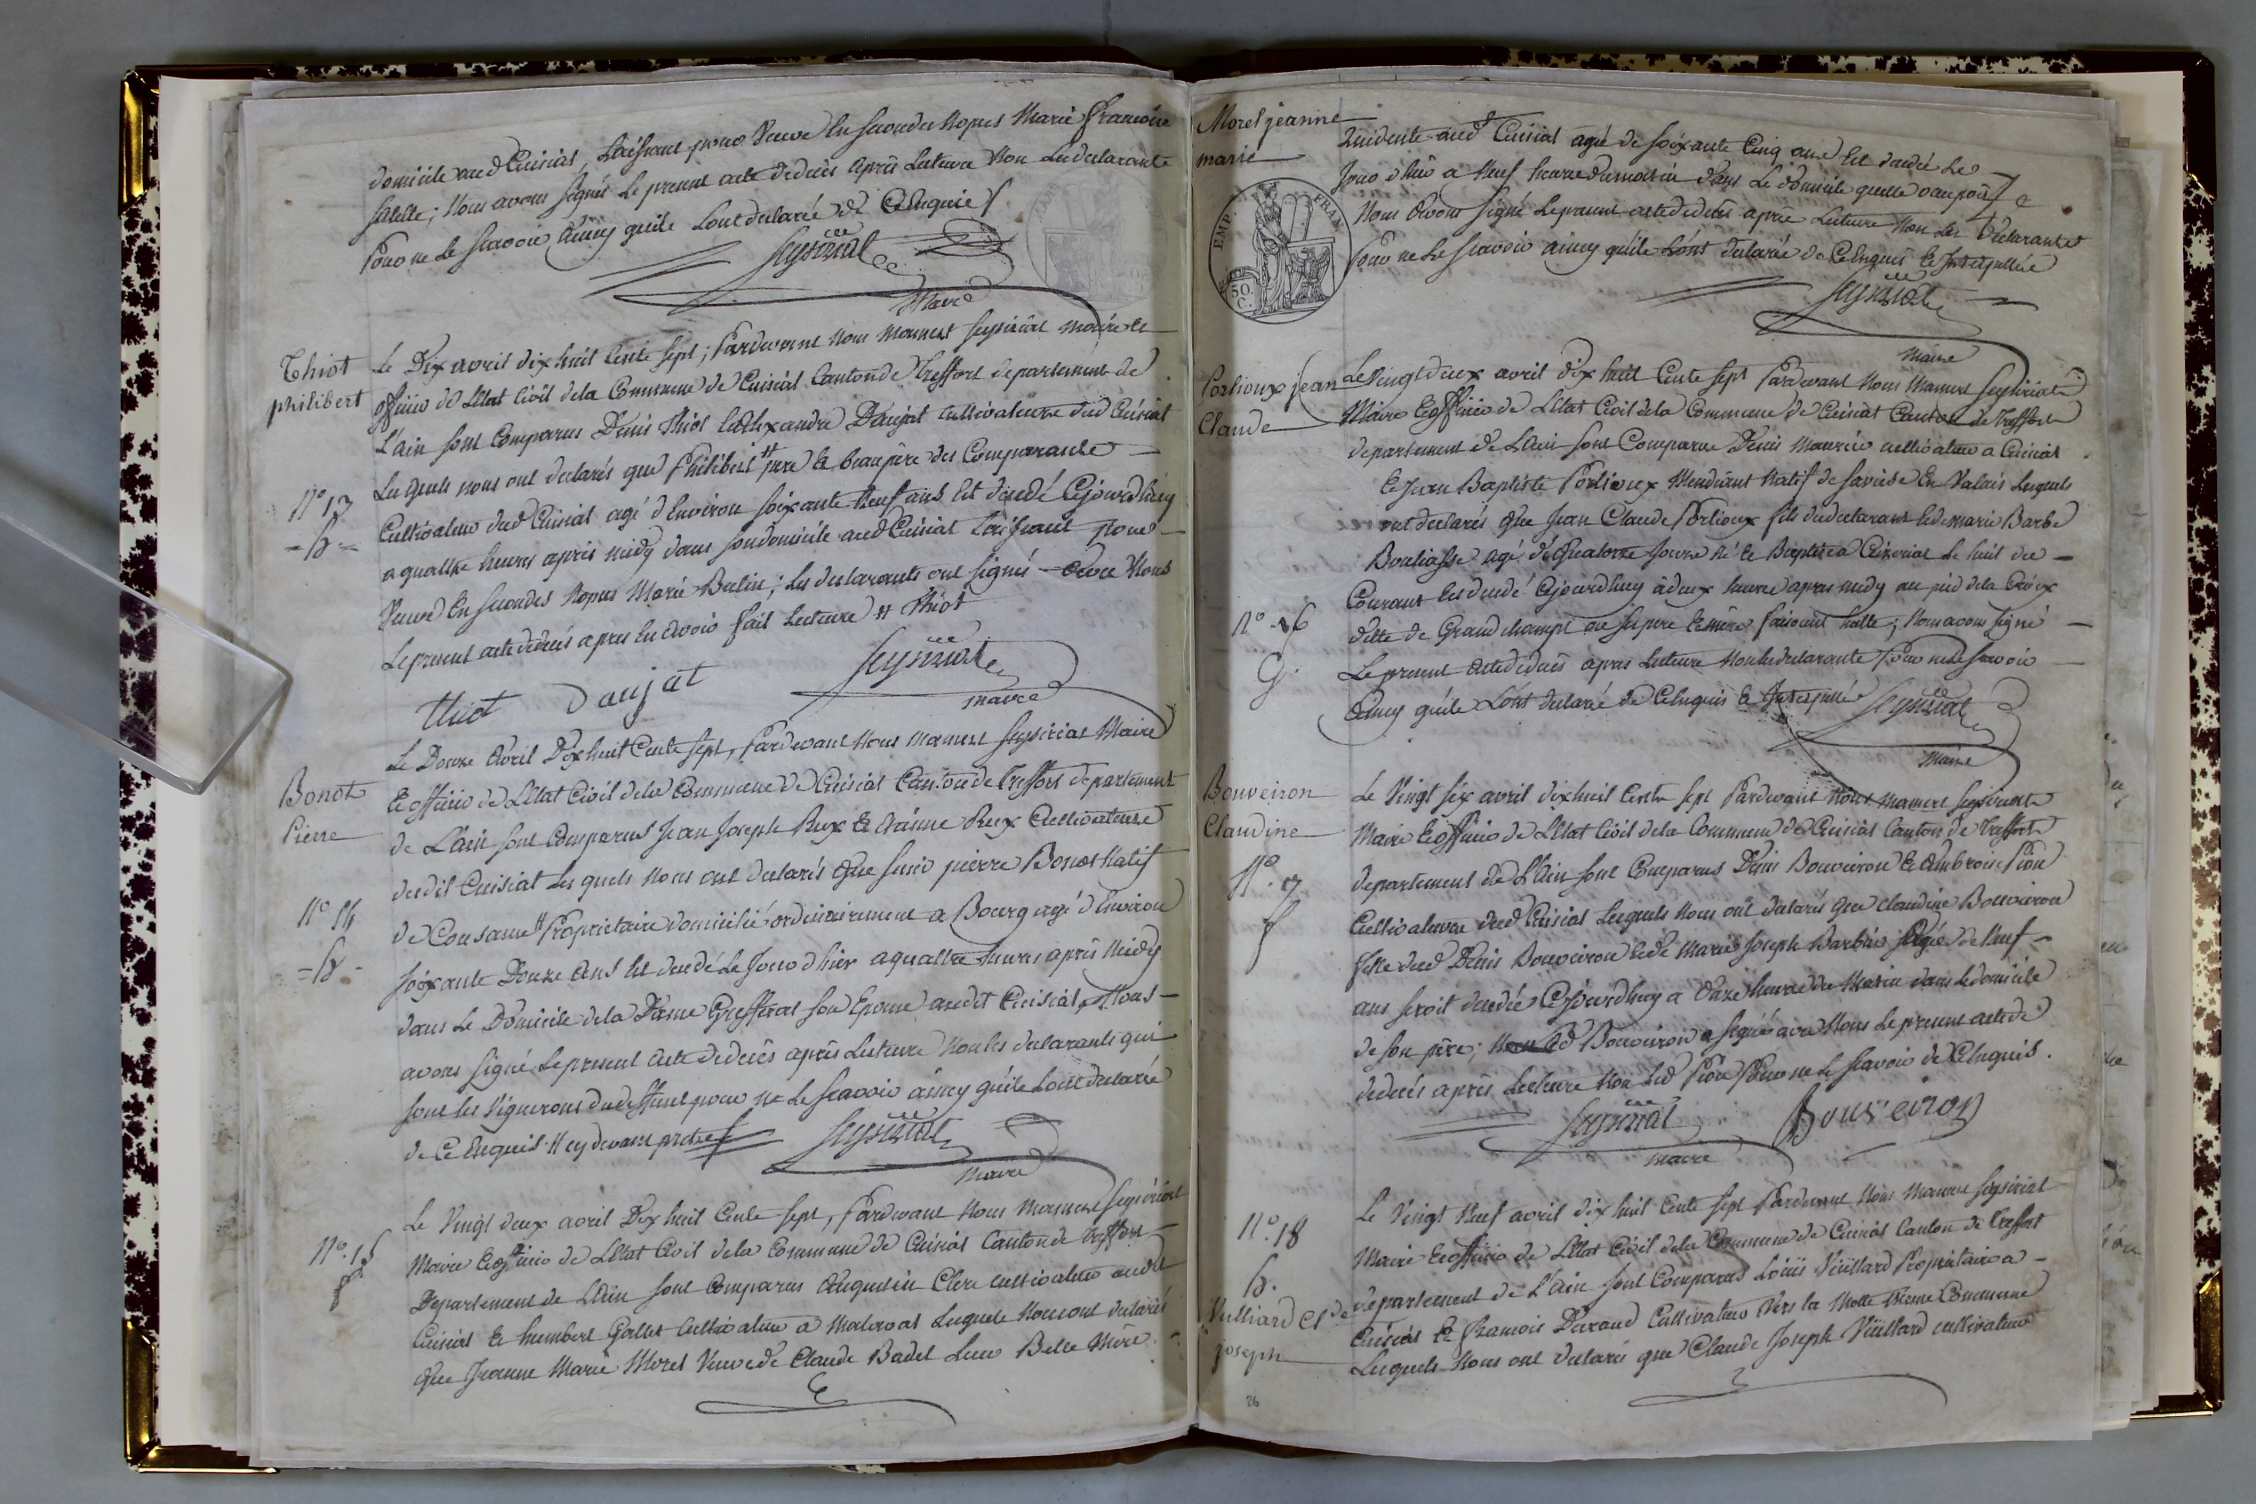 domicile aud Cuisiat, Laissant pour Veuve En Secondes Nopces Marie francoise
; Nous avons Signés Le present acte dedécès après Lecture Non Les declarants
Pour ne Le Scavoir Ainsy quils Lont declarée de Ce Enquis
Seysiriat
Maire
Thiot
philibert
N° 13
- h -
Le Dix avril dix huit Cents Sept; Pardevant Nous Mamert Seysiriat maire Et
officier de L'Etat Civil dela Commune de Cuisiat Canton de Treffort departement de
L'ain Sont Comparus Denis Thiot Et Alexandre Daujat Cultivateurs dud Cuisiat
Les quels nous ont declarés que Philibert # pere Et beaupère des Comparants
Cultivateur dud Cuisiat agé d'Environ Soixante Neuf ans Est décédé Cejourdhuy
a quatre heures après midy dans Son domicile aud Cuisiat Laissant pour
Veuve En Secondes Nopces Marie ; Les declarants ont Signés avec Nous
Le present acte dedécès apres En avoir fait Lecture # Thiot
Thiot Daujat Seysiriat
maire
Bonot
Pierre
N° 14
- h -
Le Douze Avril Dix huit Cents Sept, Pardevant Nous mamert Seysiriat Maire
Et officier de L'Etat Civil dela Commune de Cuisiat Canton de Treffort departement
de L'ain Sont Comparus Jean Joseph Rux Et Rux Cultivateurs
dudit Cuisiat Les quels Nous ont declarés Que Sieur pierre Bonot Natif
de Cousance # Proprietaire domicilié ordinairement a Bourg agé d'Environ
Soixante Douze Ans Est decedé Le Jour d'hier a quattre heures après Midy
dans Le Domicile dela Dame Son Epouse audit Cuisiat, Nous
avons Signé Le present acte dedecès après Lecture Non les declarants qui
Sont les Vignerons du deffunt pour ne Le Scavoir ainsy quils Lont declarée
de Ce Enquis # cy devant pretre
Seysiriat
maire
N° 15
f
Le Vingt deux avril Dix huit Cents Sept, Pardevant Nous Mamert Seysiriat
Maire Et officier de L'Etat Civil dela Commune de Cuisiat Canton de Treffort
Departement de L'Ain Sont Comparus Augustin Clerc cultivateur audit
Cuisiat Et humbert Gallet Cultivateur a Lesquels Nous ont declarés
Que Jeanne Marie Morel Veuve de Claude Badel Leur Belle Mère
Morel jeanne
marie
EMP. FRAN.
50 C.
Residente aud Cuisiat agée de Soixante Cinq ans Est décedée Le
Jour d'hier a Neuf heures du matin dans Le domicile
Nous Avons Signé Le present acte dedecès après Lecture Non Les Declarants
Pour ne Le Scavoir ainsy quils Lont declarée de Ce Enquis Et Interpellée
Seysiriat
maire
Porlioux jean
Claude
N° 16
G.
Le Vingt deux avril dix huit Cents Sept Pardevant Nous Mamert Seysiriat
Maire Et officier de L'Etat Civil dela Commune de Cuisiat Canton de Treffort
departement de L'Ain Sont Comparus Denis Maurice cultivateur a Cuisiat
Et Jean Baptiste Porlioux Mendiant Natif de Savièse En Valais Lesquels
ont declarés Que Jean Claude Porlioux fils dudeclarant Et de marie Barbe
agé de Quatorze Jours né Et Baptisé a Le huit du
Courant Est decedé Cejourdhuy a deux heures apres midy au pied dela Croix
ditte de Grandchampt ou Ses pere Et mère faisoient halte; Nous avons Signé
Le present acte dedecès apres Lecture Non Les declarants Pour ne Le Scavoir
Ainsy quils Lont declaré de Ce Enquis Et Interpellé
Seysiriat
maire
Bouveiron
Claudine
N° 17
f
Le Vingt Six avril dix huit Cents Sept Pardevant Nous Mamert Seysiriat
Maire Et officier de L'Etat Civil dela Commune de Cuisiat Canton de Treffort
departement de L'Ain Sont Comparus Denis Bouveiron Et Ambroise Pion
Cultivateurs dud Cuisiat Lesquels Nous ont declarés que Claudine Bouveiron
fille dud Denis Bouveiron Et de Marie Joseph Barbier Agée de Neuf
ans Seroit decedée Cejourdhuy a Onze heures du Matin dans Le domicile
de Son père; Led Bouveiron a Signé avec Nous Le present acte de
dedecès après Lecture Non Led Pion Pour ne Le Scavoir de Ce Enquis.
Seysiriat Bouveiron
maire
N° 18
h.
Vulliard Cl de
joseph
Le Vingt Neuf avril dix huit Cents Sept Pardevant Nous Mamert Seysiriat
Maire Et officier de L'Etat Civil dela Commune de Cuisiat Canton de Treffort
departement de L'Ain Sont Comparus Louis Vuillard Proprietaire a
Cuisiat Et francois Durand Cultivateur Vers la Motte Meme Commune
Lesquels Nous ont declarés que Claude Joseph Vuillard cultivateur
26